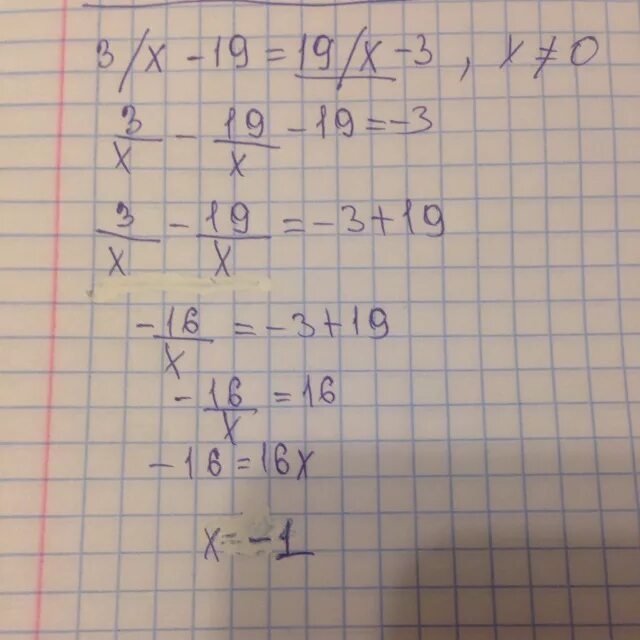 3/x - 19 = 19/x - 3 , x ≠ 0
3/x - 19/x - 19 = -3
3/x - 19/x = -3 + 19
-16/x = -3 + 19
-16/x = 16
-16 = 16x
x = -1